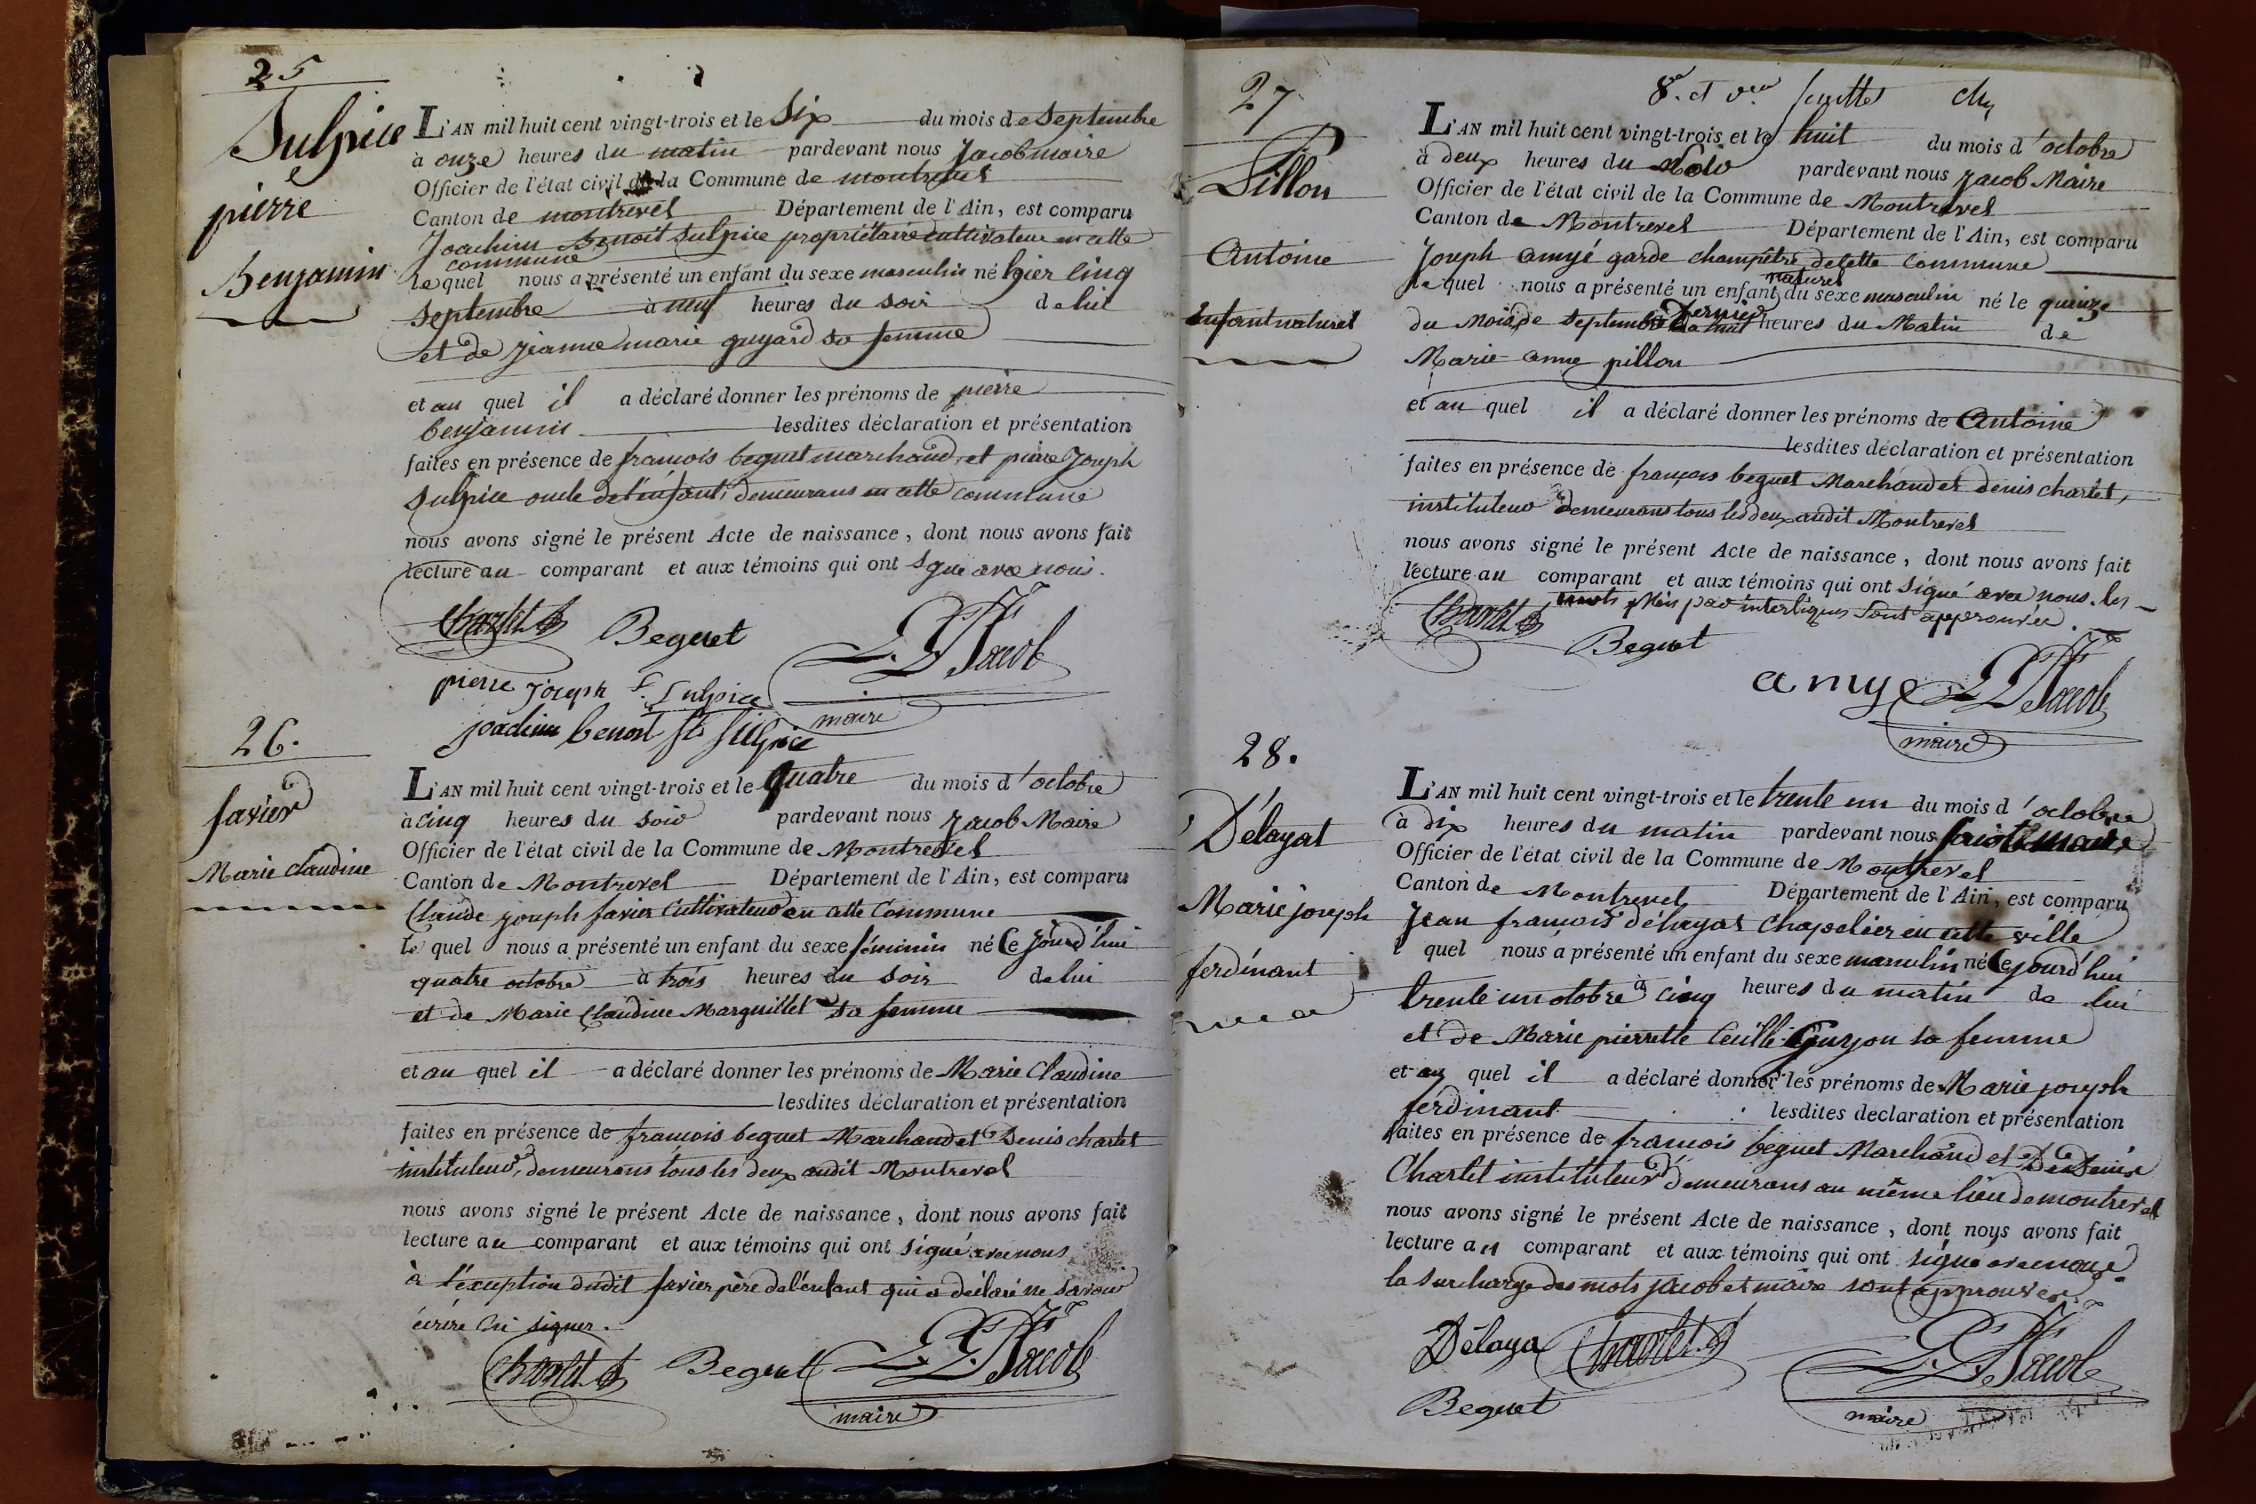 25
Sulpice
pierre
Benjamin
L'AN mil huit cent vingt-trois et le Six du mois de Septembre
à onze heures du matin pardevant nous Jacob maire
Officier de l'état civil de la Commune de montrevel
Canton de montrevel Département de l'Ain, est comparu
Joachim Benoit Sulpice propriétaire cultivateur en cette
commune
le quel nous a présenté un enfant du sexe masculin né hier cinq
Septembre à neuf heures du soir de lui
et de jeanne marie guyard sa femme
et au quel il a déclaré donner les prénoms de pierre
benjamin lesdites déclaration et présentation
faites en présence de francois beguet marchand, et pierre Joseph
Sulpice oncle de l'enfant, demeurans en cette commune
nous avons signé le présent Acte de naissance, dont nous avons fait
lecture au comparant et aux témoins qui ont signé avec nous.
Charlet Beguet Jacob
pierre joseph St. Sulpice maire
joachim benoit St Sulpice
26.
favier
Marie Claudine
L'AN mil huit cent vingt-trois et le quatre du mois d'octobre
à cinq heures du soir pardevant nous Jacob Maire
Officier de l'état civil de la Commune de Montrevel
Canton de Montrevel Département de l'Ain, est comparu
Claude joseph favier Cultivateur en cette Commune
le quel nous a présenté un enfant du sexe féminin né Ce jourd'hui
quatre octobre à trois heures du soir de lui
et de Marie Claudine Marguillet sa femme
et au quel il a déclaré donner les prénoms de Marie Claudine
lesdites déclaration et présentation
faites en présence de francois beguet Marchand et Denis charlet
instituteur, demeurans tous les deux audit Montrevel
nous avons signé le présent Acte de naissance, dont nous avons fait
lecture au comparant et aux témoins qui ont signé avec nous
à l'éxception dudit favier père de l'enfant qui a déclaré ne savoir
écrire ni signer.
Charlet Beguet Jacob
maire
8e. et feuillet
27
Pillon
Antoine
Enfant naturel
L'AN mil huit cent vingt-trois et le huit du mois d'octobre
à deux heures du soir pardevant nous Jacob Maire
Officier de l'état civil de la Commune de Montrevel
Canton de Montrevel Département de l'Ain, est comparu
Joseph amyé garde champêtre de cette commune
naturel
le quel nous a présenté un enfant du sexe masculin né le quinze
dernier
du Mois de Septembre à huit heures du Matin de
Marie anne pillon
et au quel il a déclaré donner les prénoms de Antoine
lesdites déclaration et présentation
faites en présence de françois beguet Marchand et denis charlet,
instituteur demeurans tous les deux audit Montrevel
nous avons signé le présent Acte de naissance, dont nous avons fait
lecture au comparant et aux témoins qui ont signé avec nous. les
mots mis par interlignes sont approuvés.
Charlet Beguet
amyé Jacob
maire
28.
Délayat
Marie joseph
ferdinant
L'AN mil huit cent vingt-trois et le trente un du mois d'octobre
à dix heures du matin pardevant nous jacob maire
Officier de l'état civil de la Commune de Montrevel
Canton de Montrevel Département de l'Ain, est comparu
Jean francois délayat Chapelier en cette ville
l quel nous a présenté un enfant du sexe masculin né Ce jourd'hui
trente un otobre à cinq heures du matin de lui
et de Marie pierrette Guyon sa femme
et au quel il a déclaré donner les prénoms de Marie joseph
ferdinant lesdites declaration et présentation
faites en présence de francois beguet Marchand et Denis
Charlet instituteur demeurans au même lieu de montrevel
nous avons signé le présent Acte de naissance, dont nous avons fait
lecture au comparant et aux témoins qui ont signé avec nous
la surcharge des mots jacob et maire sont approuvés.
Délaya Charlet Jacob
Beguet maire